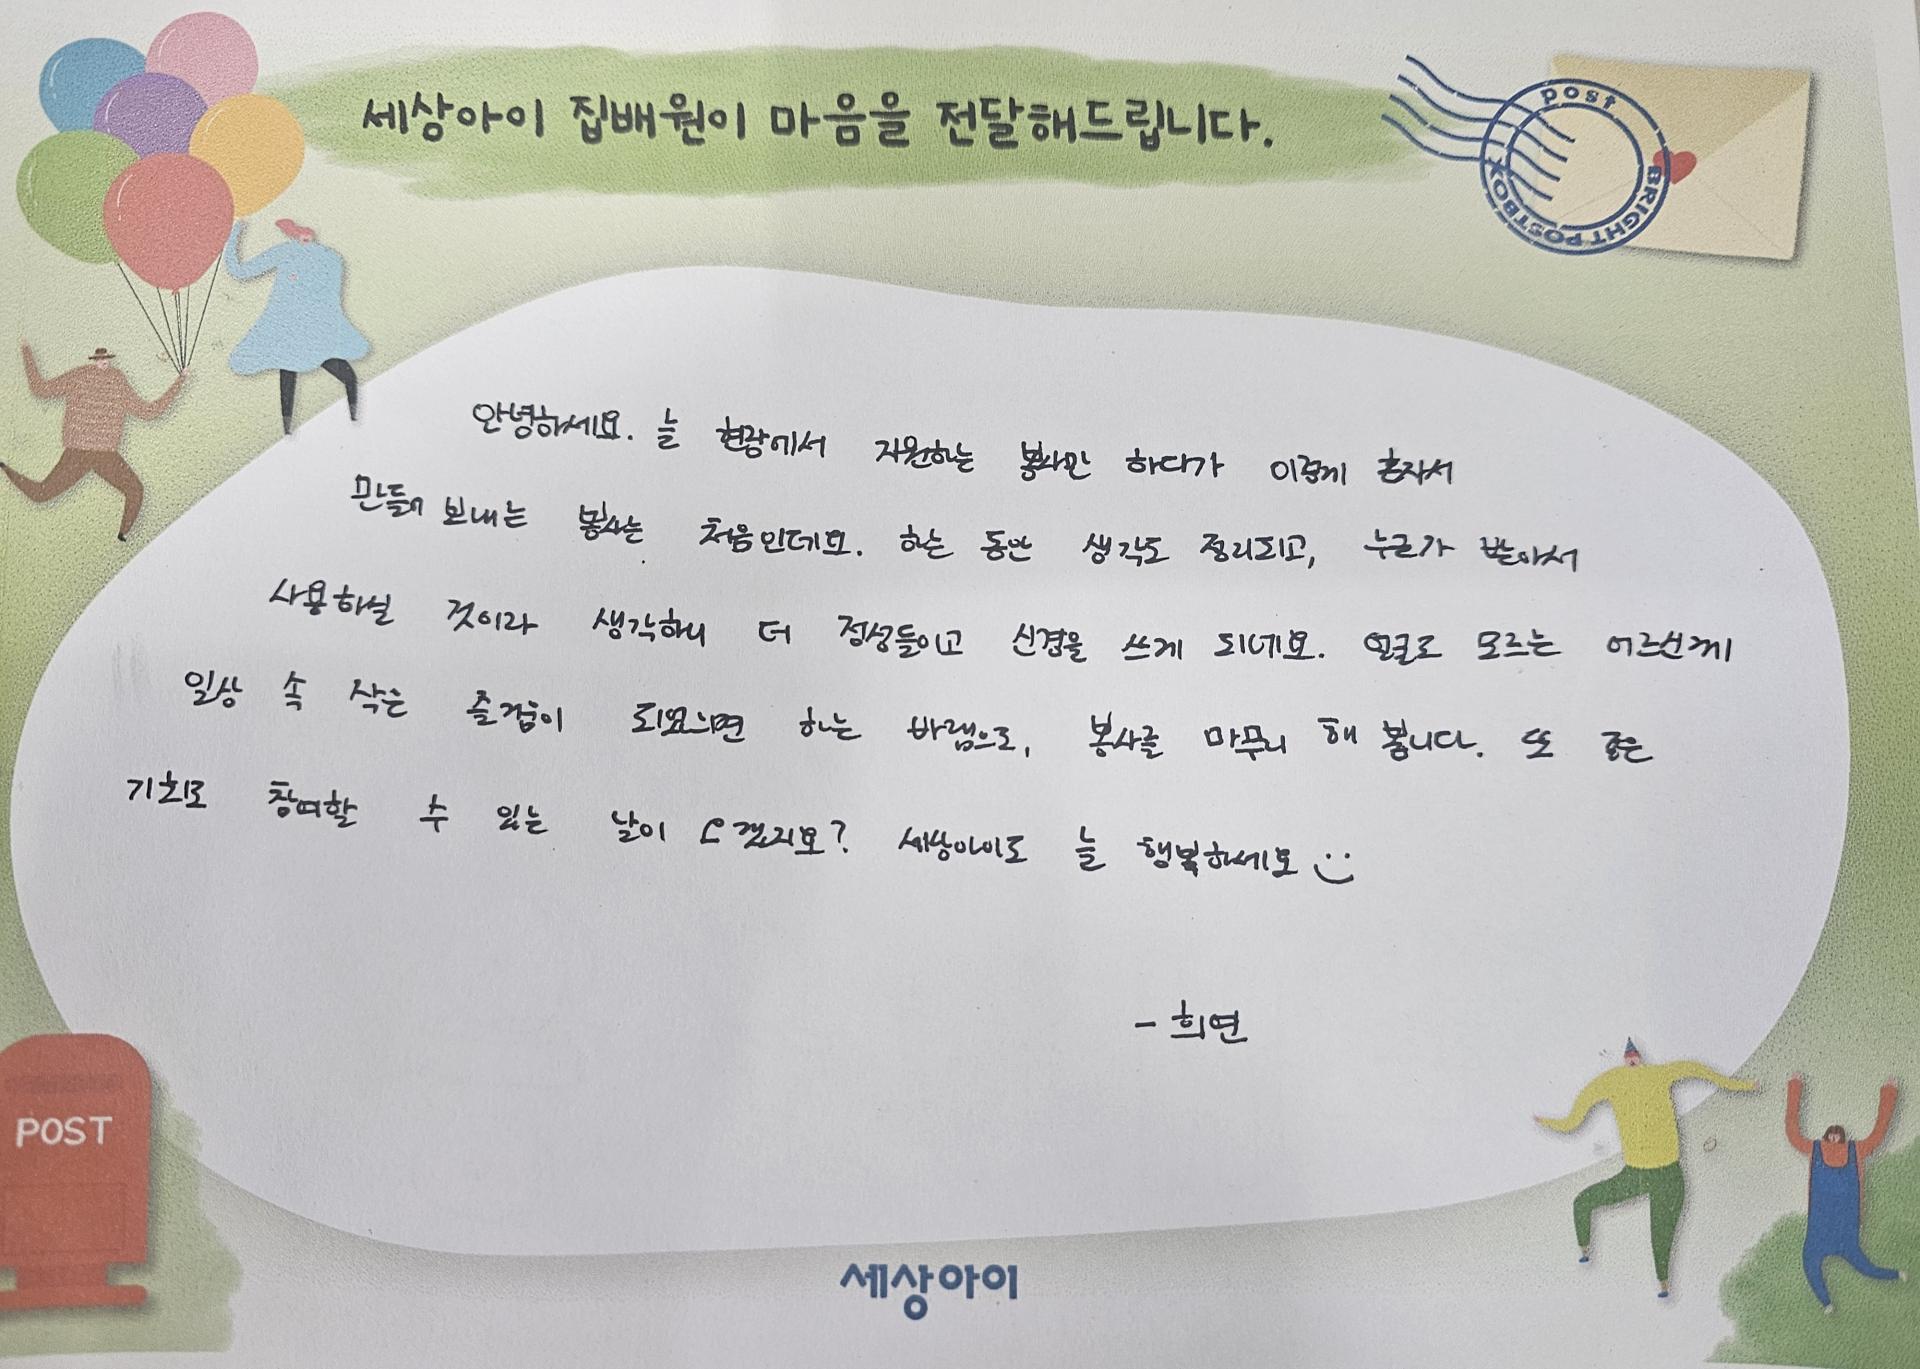 세상아이 집배원이 마음을 전달해드립니다.
post
BRIGHT POSTBOX
안녕하세요. 늘 현장에서 지원하는 봉사만 하다가 이렇게 혼자서
만들어 보내는 봉사는 처음인데요. 하는 동안 생각도 정리되고, 누군가 받아서
사용하실 것이라 생각하니 더 정성들이고 신경을 쓰게 되네요. 얼굴도 모르는 어르신께
일상 속 작은 즐거움이 되었으면 하는 바램으로, 봉사를 마무리 해 봅니다. 또 좋은
기회로 참여할 수 있는 날이 오겠지요? 세상아이도 늘 행복하세요
- 희연
POST
세상아이